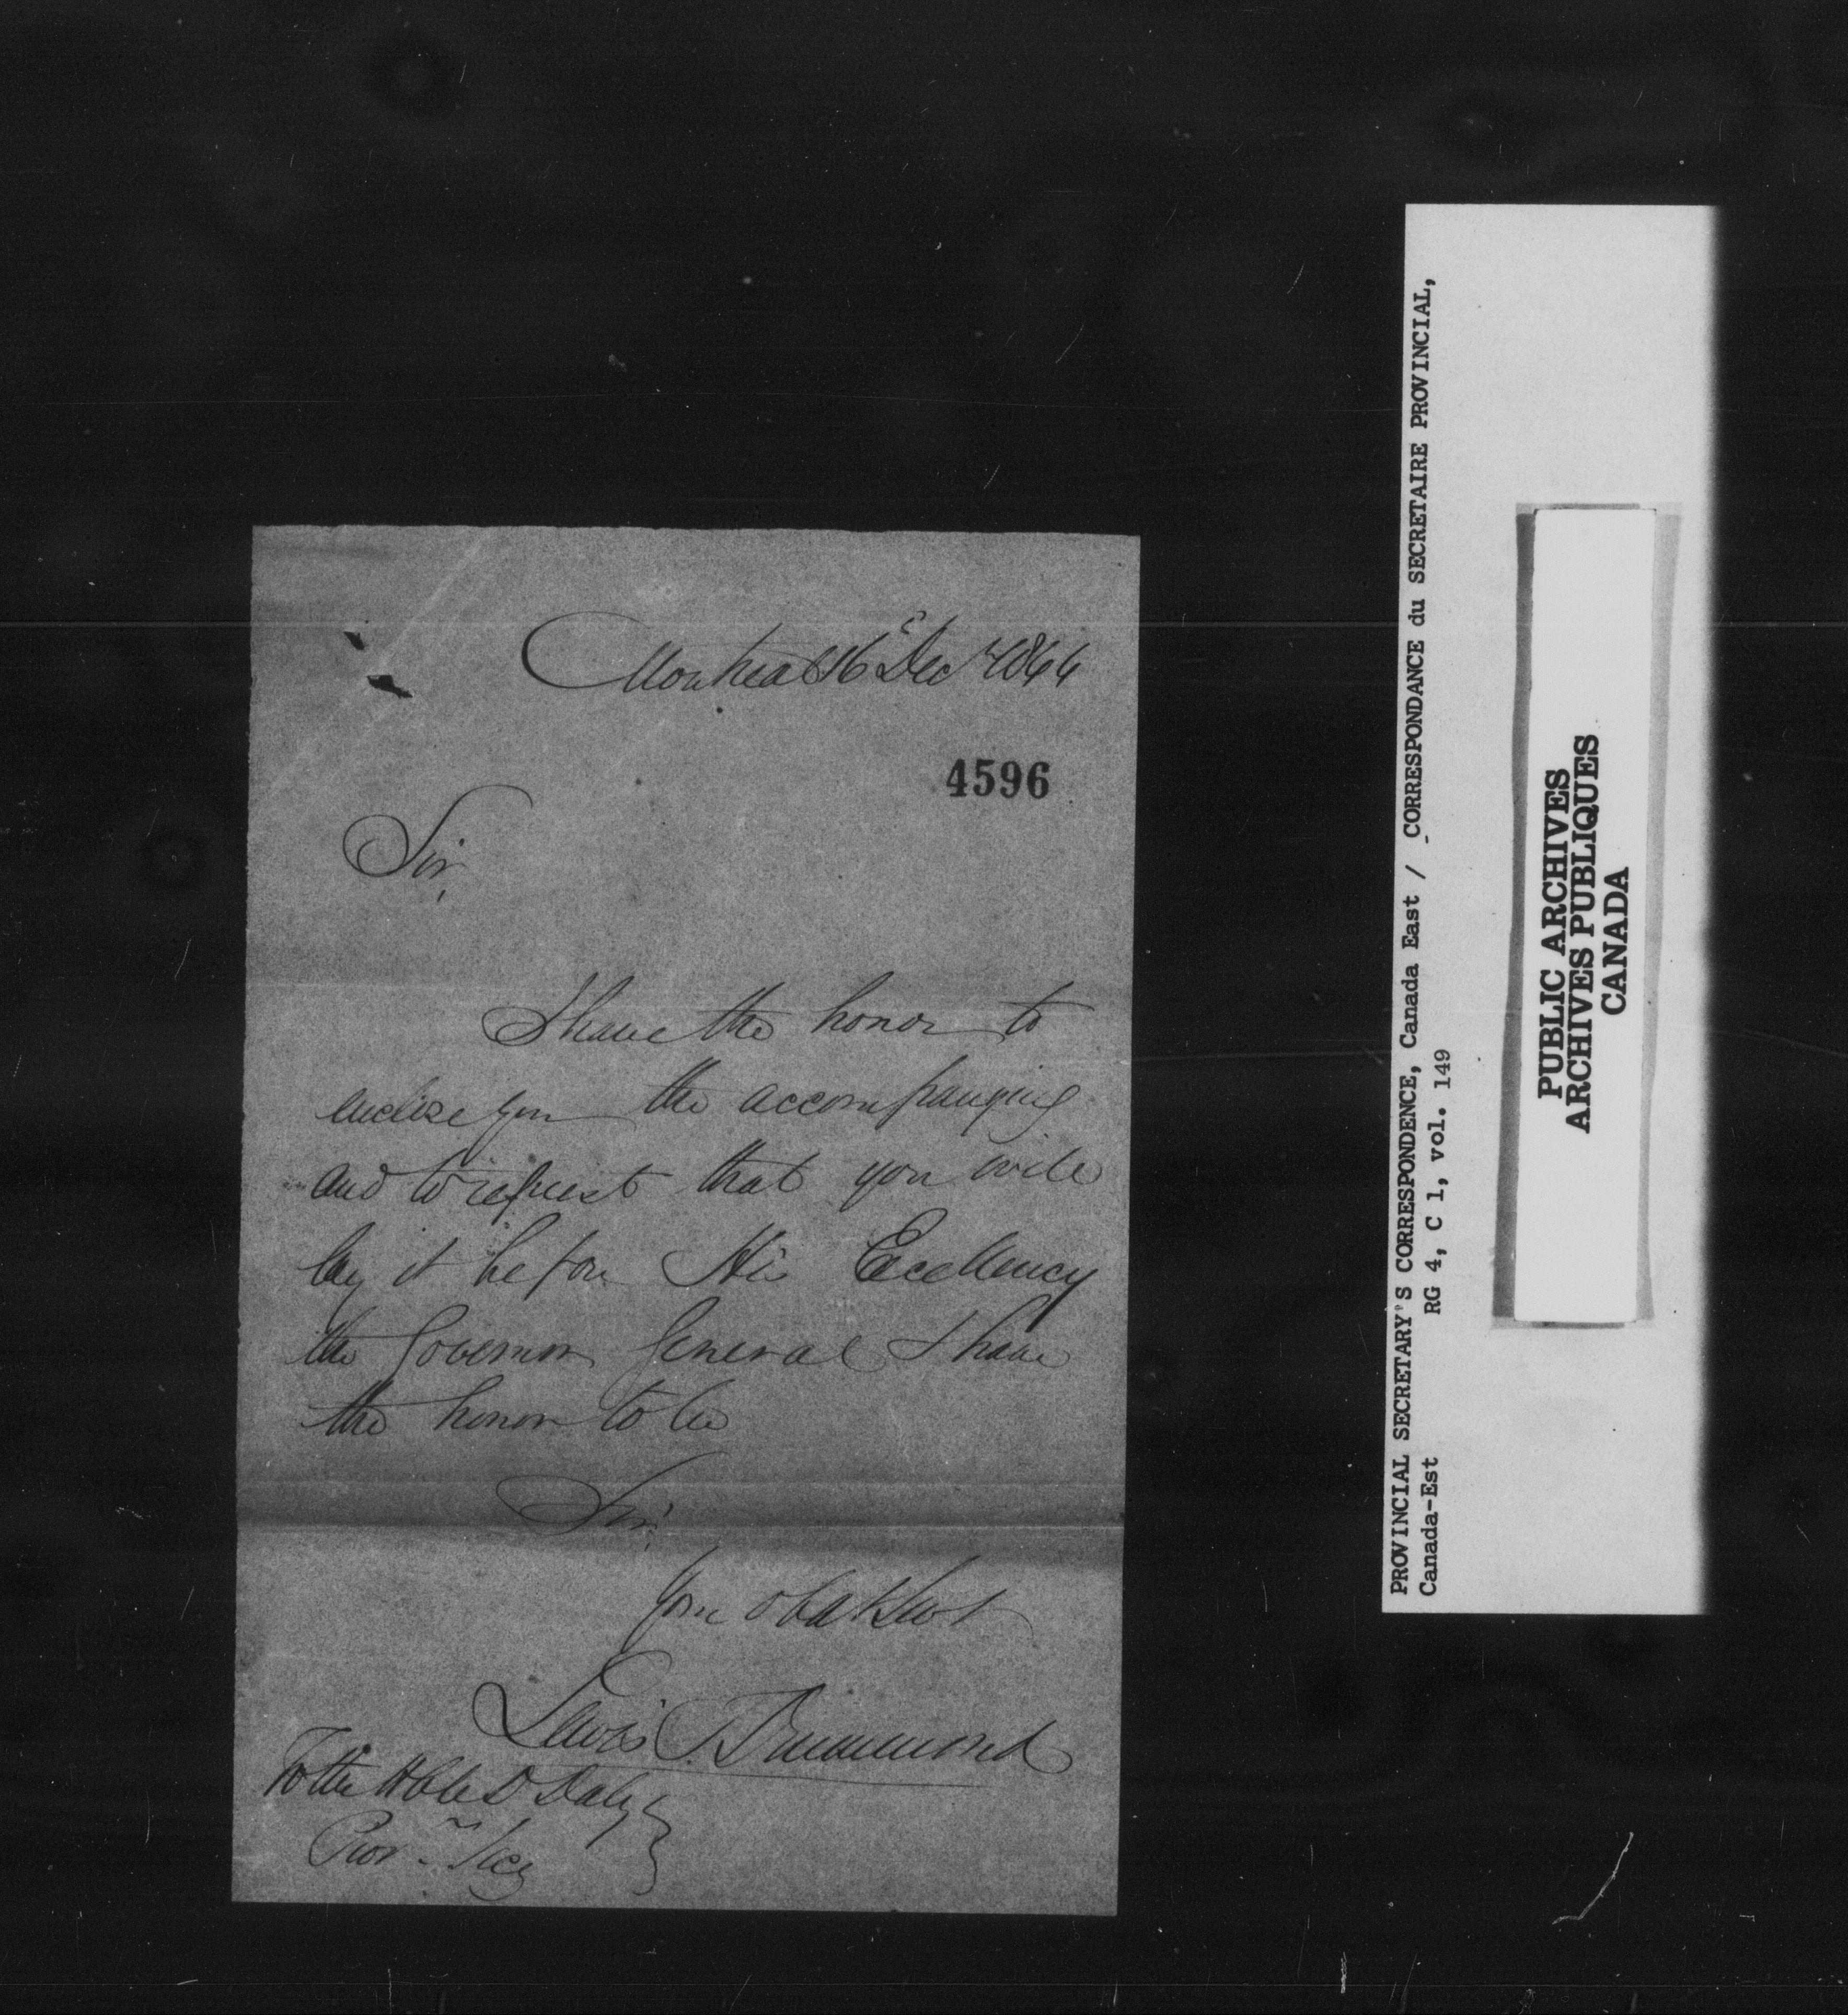 Montreal 16 Dec 1844
4596
Sir,
I have the honor to
enclose you the accompanying
and to request that you will
lay it before His Excellency
the Governor General I have
the honor to be
Sir
Your obdt Servt
Lewis T. Drummond
To the Hble D Daly
Prov. Secy
PROVINCIAL SECRETARY'S CORRESPONDENCE, Canada East / CORRESPONDANCE du SECRETAIRE PROVINCIAL,
Canada-Est RG 4, C 1, vol. 149
PUBLIC ARCHIVES
ARCHIVES PUBLIQUES
CANADA